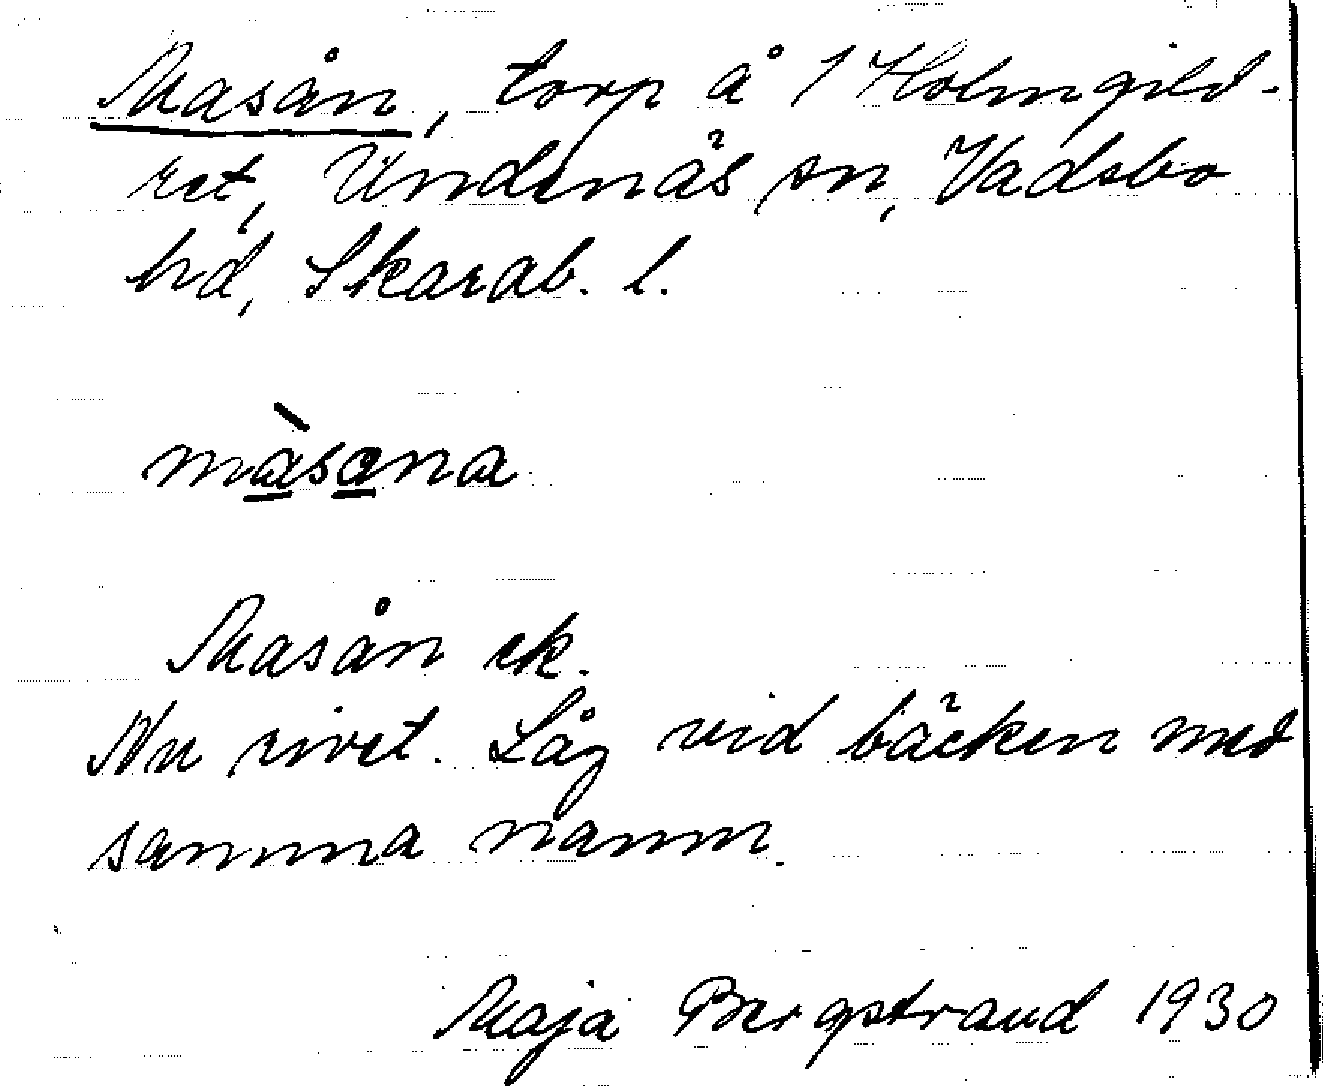 Masån, torp å 1 Holmgild-
ret, Undenäs sn, Vadsbo
hd, Skarab. l.
màsana
Masån ek.
Nu rivet. Låg vid bäcken med
samma namn.
Maja Bergstrand 1930